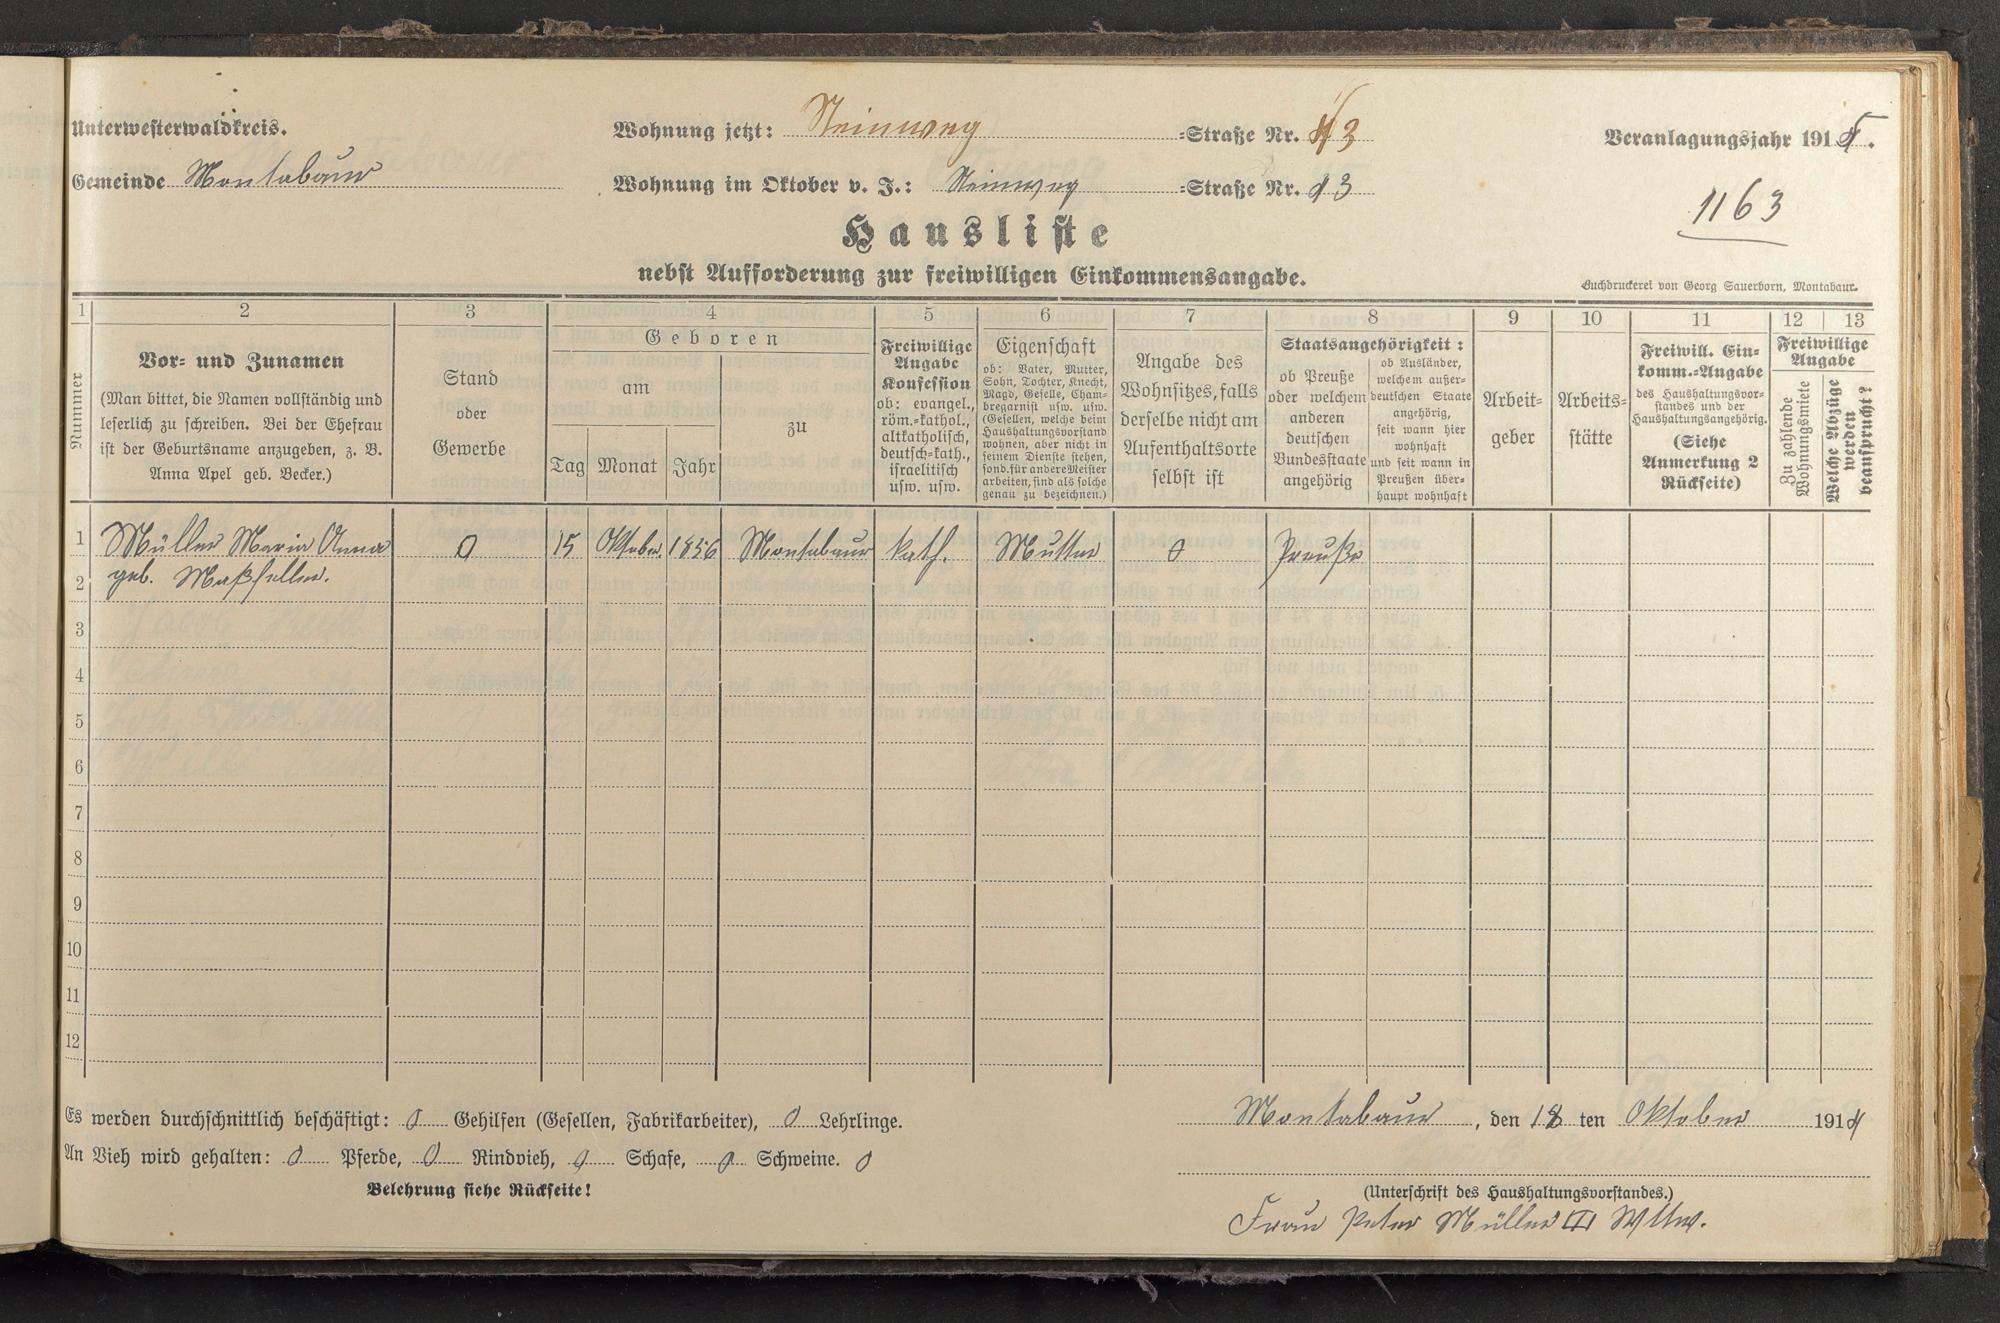 Unterwesterwaldkreis.
Gemeinde Montabaur
Wohnung jetzt: Steinweg =Straße Nr. 13
Wohnung im Oktober v. J.: Steinweg =Straße Nr. 13
Veranlagungsjahr 1915.
1163
Hausliste
nebst Aufforderung zur freiwilligen Einkommensangabe.
Buchdruckerei von Georg Sauerborn, Montabaur.
1
Nummer
2
Vor- und Zunamen
(Man bittet, die Namen vollständig und
leserlich zu schreiben. Bei der Ehefrau
ist der Geburtsname anzugeben, z. B.
Anna Apel geb. Becker.)
3
Stand
oder
Gewerbe
4
Geboren
am
Tag Monat Jahr
zu
5
Freiwillige
Angabe
Konfession
ob: evangel.,
röm.-kathol.,
altkatholisch,
deutsch-kath.,
israelitisch
usw. usw.
6
Eigenschaft
ob: Vater, Mutter,
Sohn, Tochter, Knecht,
Magd, Geselle, Cham-
bregarnist usw. usw.
(Gesellen, welche beim
Haushaltungsvorstand
wohnen, aber nicht in
seinem Dienste stehen,
sond. für andere Meister
arbeiten, sind als solche
genau zu bezeichnen.)
7
Angabe des
Wohnsitzes, falls
derselbe nicht am
Aufenthaltsorte
selbst ist
8
Staatsangehörigkeit:
ob Preuße
oder welchem
anderen
deutschen
Bundesstaate
angehörig
ob Ausländer,
welchem außer-
deutschen Staate
angehörig,
seit wann hier
wohnhaft
und seit wann in
Preußen über-
haupt wohnhaft
9
Arbeit-
geber
10
Arbeits-
stätte
11
Freiwill. Ein-
komm.-Angabe
des Haushaltungsvor-
standes und der
Haushaltungsangehörig.
(Siehe
Anmerkung 2
Rückseite)
12 13
Freiwillige
Angabe
Zu zahlende
Wohnungsmiete
Welche Abzüge
werden
beansprucht?
1 Müller Maria Anna 0 15 Oktober 1856 Montabaur kath. Mutter 0 Preuße
2 geb. Maßfeller.
3
4
5
6
7
8
9
10
11
12
Es werden durchschnittlich beschäftigt: 0 Gehilfen (Gesellen, Fabrikarbeiter), 0 Lehrlinge.
An Vieh wird gehalten: 0 Pferde, 0 Rindvieh, 0 Schafe, 0 Schweine. 0
Belehrung siehe Rückseite!
Montabaur, den 18 ten Oktober 1914
(Unterschrift des Haushaltungsvorstandes.)
Frau Peter Müller III Wttw.